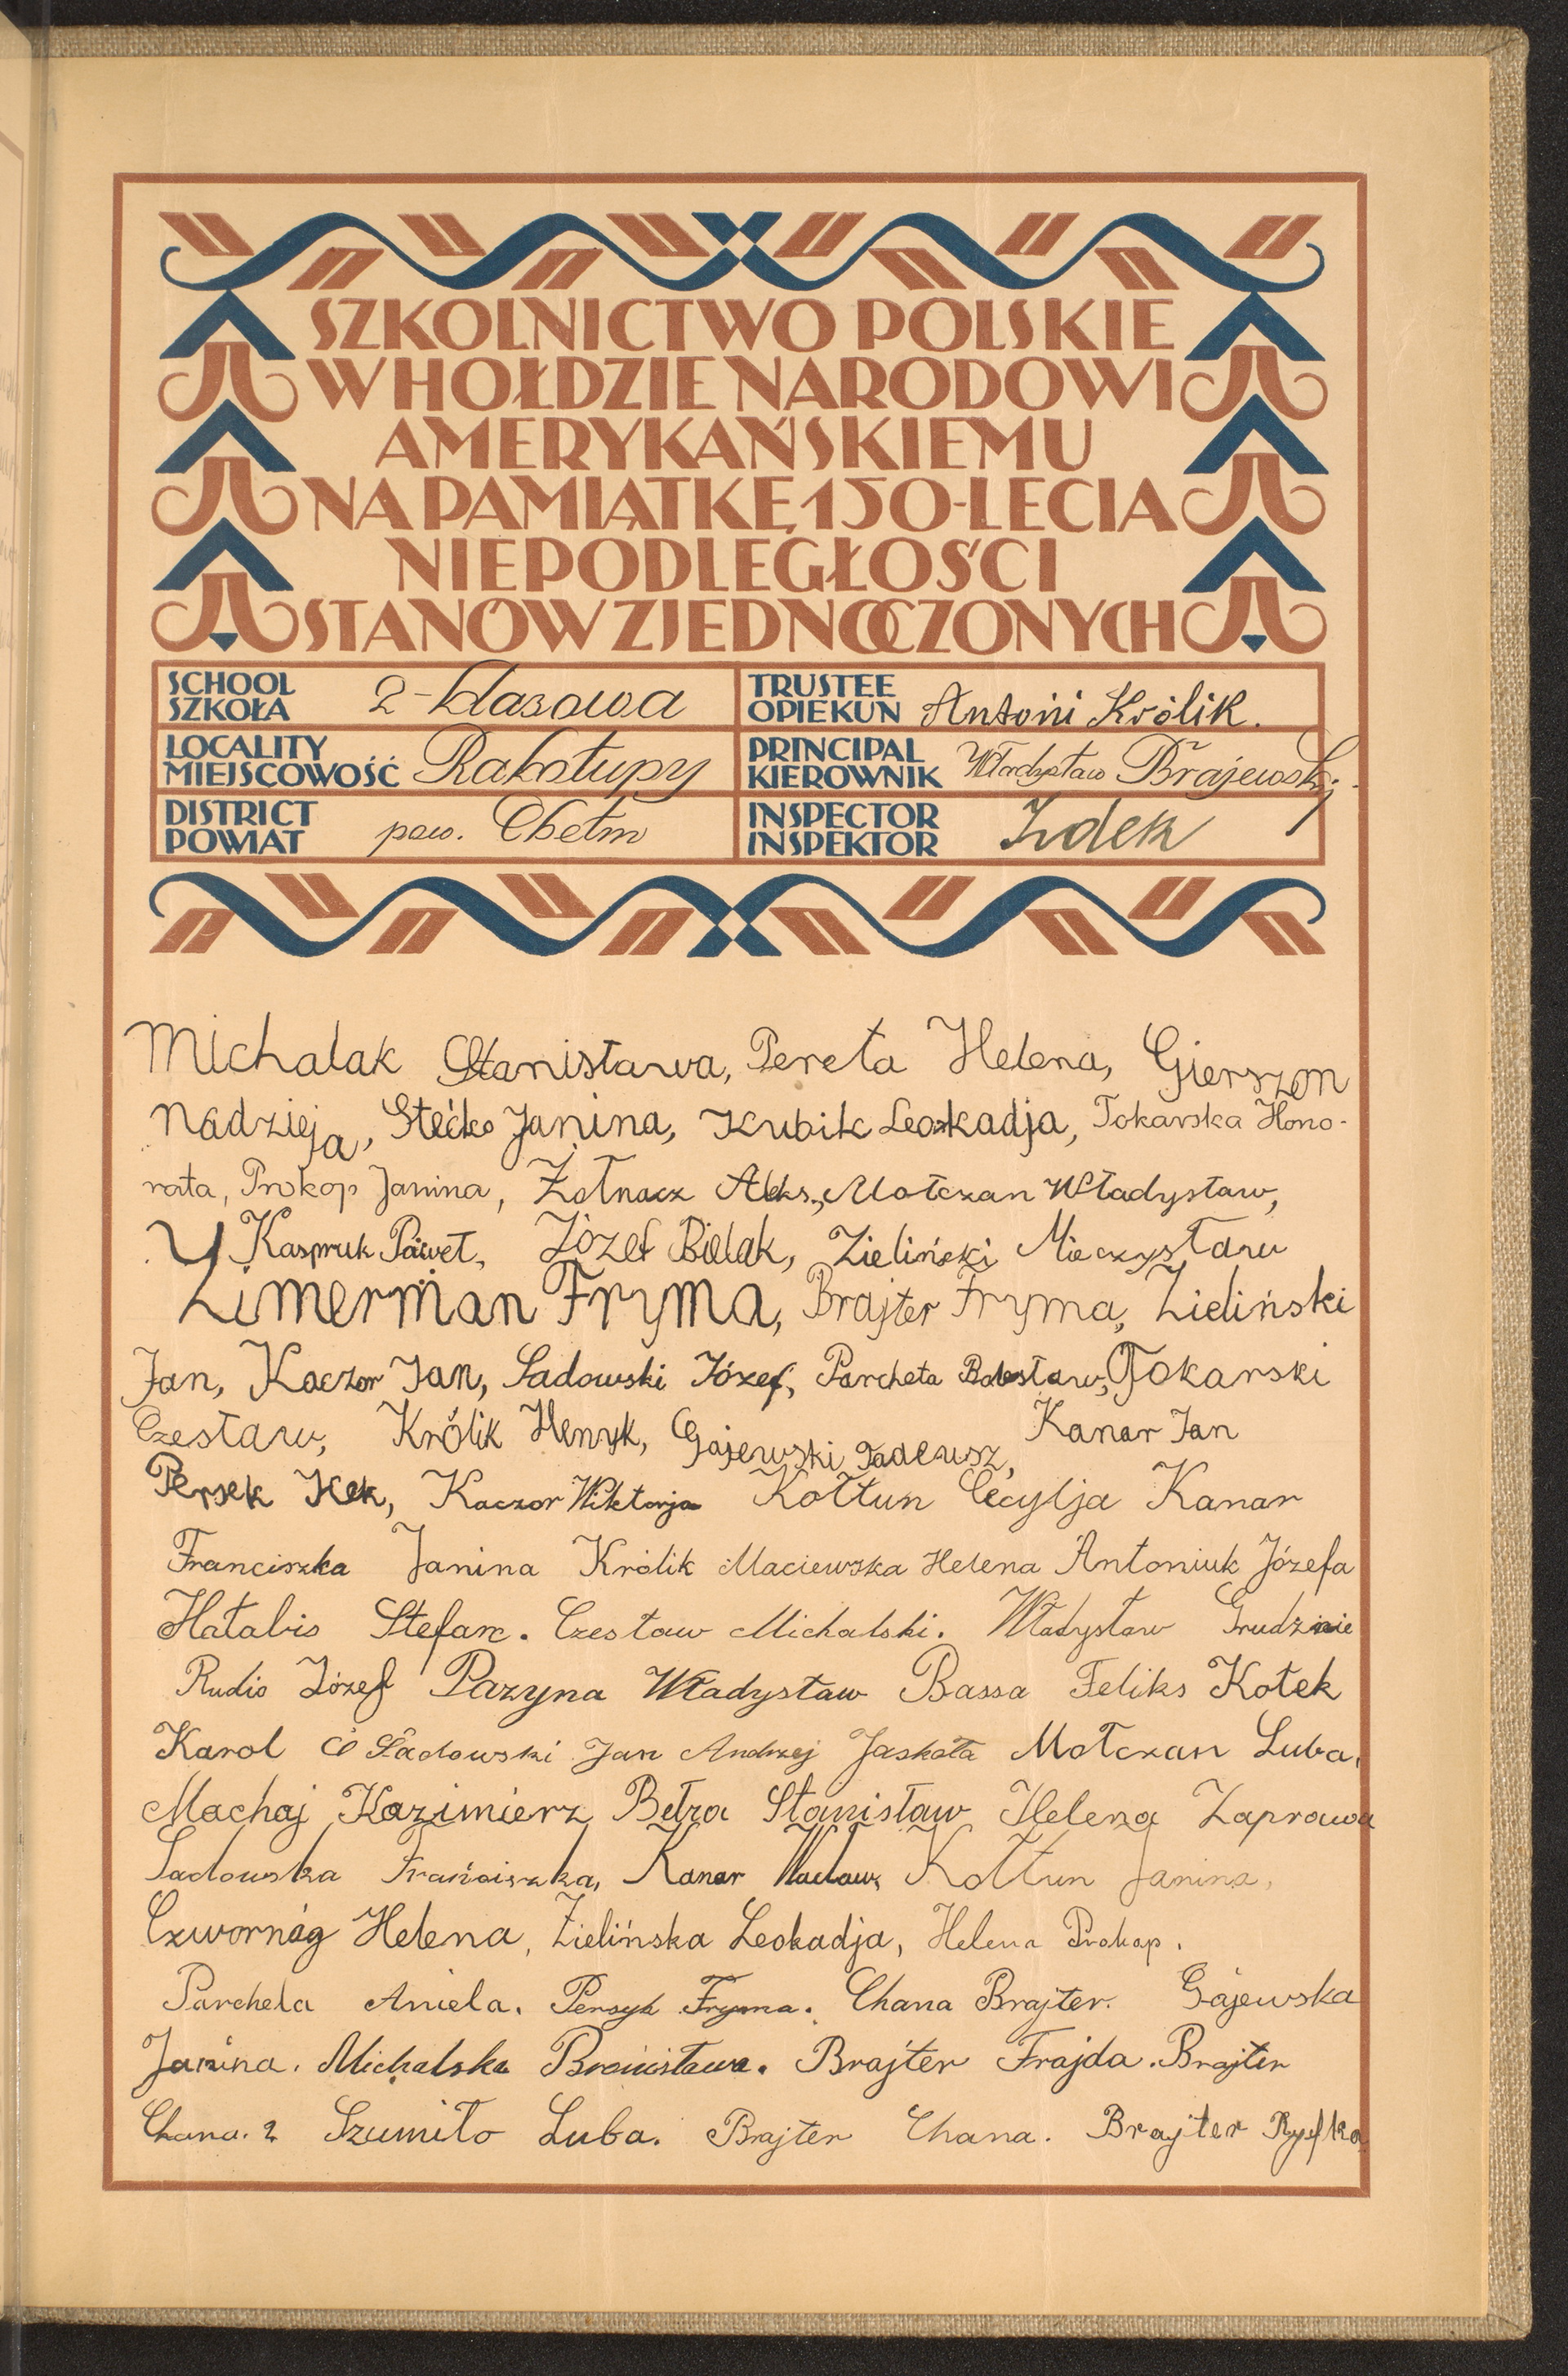 SZKOLNICTWO POLSKIE
W HOŁDZIE NARODOWI
AMERYKAŃSKIEMU
NA PAMIĄTKĘ 150-LECIA
NIEPODLEGŁOŚCI
STANÓW ZJEDNOCZONYCH
SCHOOL
SZKOŁA 2-klasowa
TRUSTEE
OPIEKUN Antoni Królik.
LOCALITY
MIEJSCOWOŚĆ Rakołupy
PRINCIPAL
KIEROWNIK Władysław Brajewski
DISTRICT
POWIAT pow. Chełm
INSPECTOR
INSPEKTOR Zdek
Michalak Stanisława, Pereta Helena, Gierszon
Nadzieja, Stećko Janina, Kubik Leokadja, Tokarska Hono-
rata, Prokop Janina, Żołnacz Aleks., Mołczan Władysław,
Kaspruk Paweł, Józef Bielak, Zieliński Mieczysław
Zimerman Fryma, Brajter Fryma, Zieliński
Jan, Kaczor Jan, Sadowski Józef, Parcheta Bolesław, Tokarski
Czesław, Królik Henryk, Gajewski Tadeusz, Kanar Jan
Persek Icek, Kaczor Wiktorja Kołtun Cecylja Kanar
Franciszka Janina Królik Maciewska Helena Antoniuk Józefa
Hałabis Stefan. Czesław Michalski. Władysław Grudzinie
Rudis Józef Pazyna Władysław Bassa Feliks Kotek
Karol Sadowski Jan Andrzej Jaskoła Mołczan Luba.
Machaj Kazimierz Bełza Stanisław Helena Zaprawa
Sadowska Franciszka, Kanar Wacław, Kołtun Janina,
Czwornóg Helena, Zielińska Leokadja, Helena Prokop.
Parcheta Aniela. Persyk Fryma. Chana Brajter. Gajewska
Janina. Michalska Bronisława. Brajter Frajda. Brajter
Chana. 2 Szumiło Luba. Brajter Chana. Brajter Ryfka